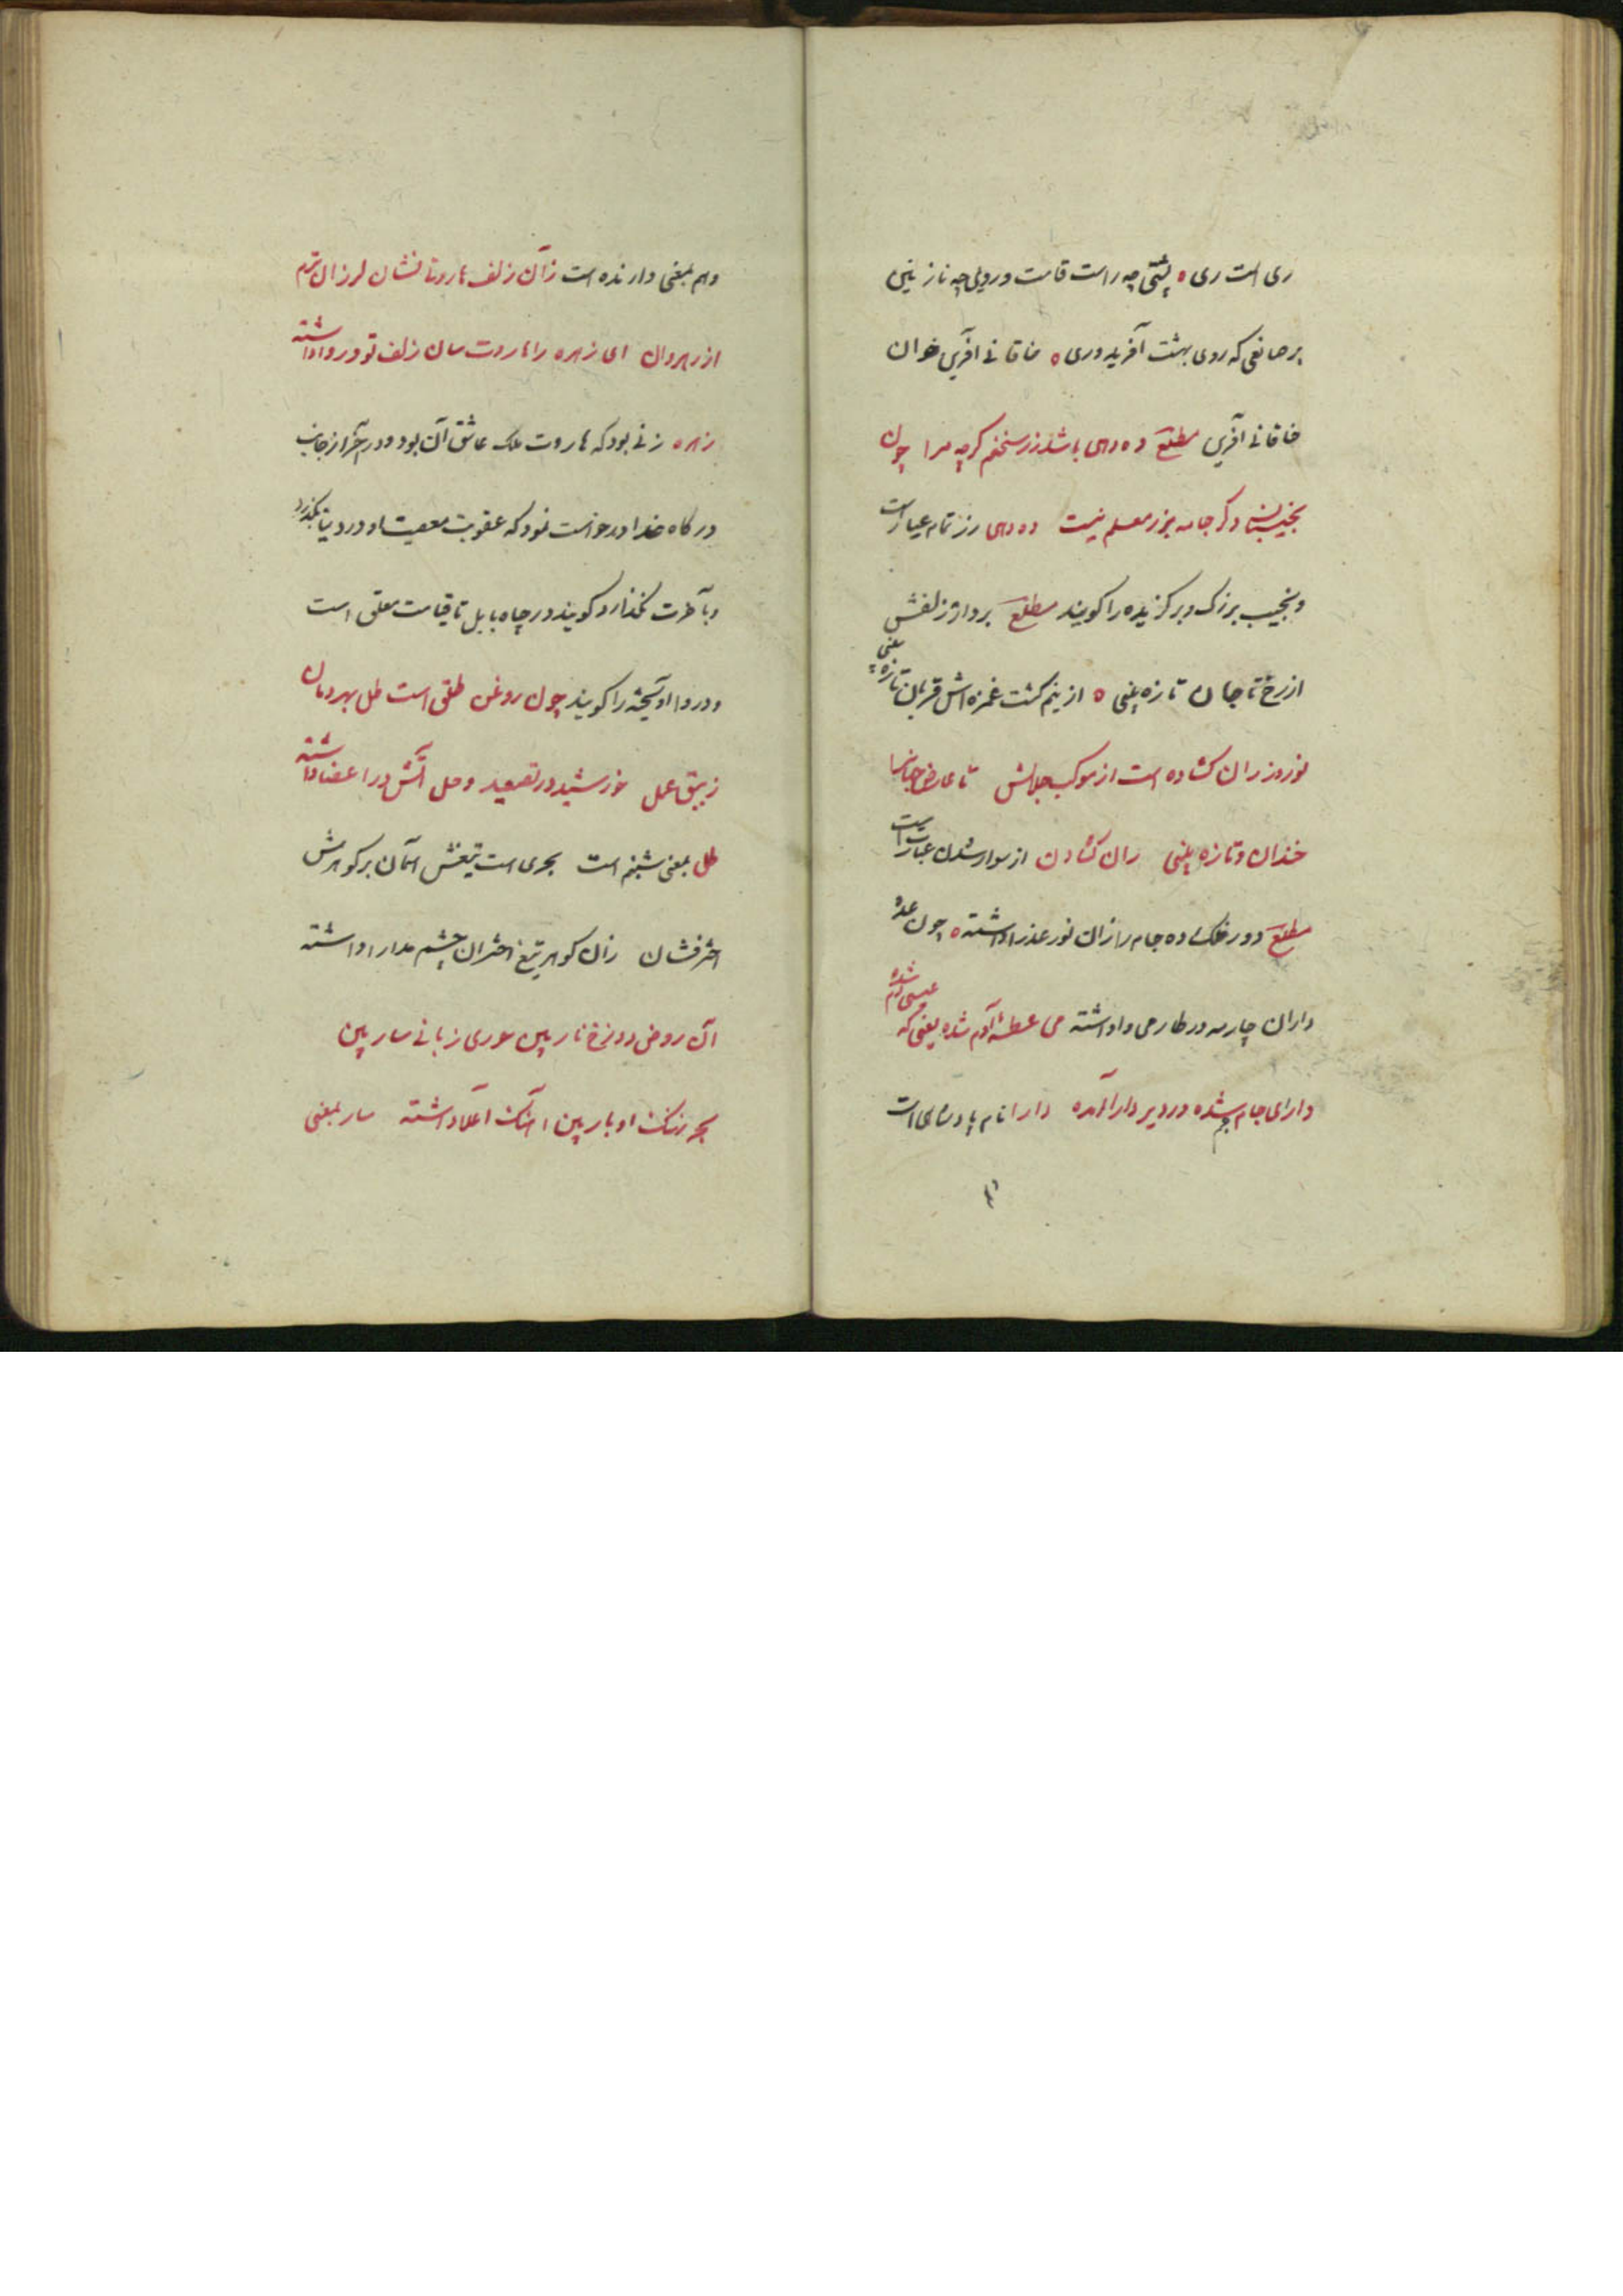 ری است ری ه پشتی چه راست قامت و رویی چه نازنین
بر صانعی که روی بهشت آفرید وری ه خاقانی آفرین خوان
خاقانی آفرین مطلع ده دهی باشد زر سخنم گرچه مرا چون
نجیبان دگر جامه بزر معلم نیست ده دهی زر تمام عیار است
و نجیب بزرگ و برگزیده را گویند مطلع بردار زلفش
از رخ تا جان تازه بینی ه از نیم کشت غمزه اش قربان تازه بینی
نوروز ران گشاده است از موکب جلالش تا عارض جهانرا
خندان و تازه بینی ران گشادن از سوار شدن عبارت است
مطلع دور فلک ده جام را از نور عذرا داشته ه چون عده
داران چار مه در طارمی وا داشته می عطسه آدم شده یعنی که عیسی دم شده
دارای جام جم شده در دیر دارا آمده دارا نام پادشاهی است
و هم بمعنی دارنده است زان زلف هاروتا نشان لرزان ترم
از رهروان ای زهره را هاروت سان زلف تو دروا داشته
زهره زنی بود که هاروت ملک عاشق آن بود و در آخر از جانب
درگاه خدا درخواست نمود که عقوبت معصیت او در دنیا بگذرد
و بآخرت نگذارد گویند در چاه بابل تا قیامت معلق است
و دروا آویخته را گویند چون روغن طلق است طل بهر دمان
زیبق عمل خورشید در تصعید و حل آتش در اعضا داشته
طل بمعنی شبنم است بحری است تیغش آسمان بر گوهرش
اختر فشان زان گوهر تیغ اختران چشم مدارا داشته
آن روض دوزخ نار بین حوری زبانی سار بین
بحر نهنگ اوبار بین آهنگ اعدا داشته سار بمعنی